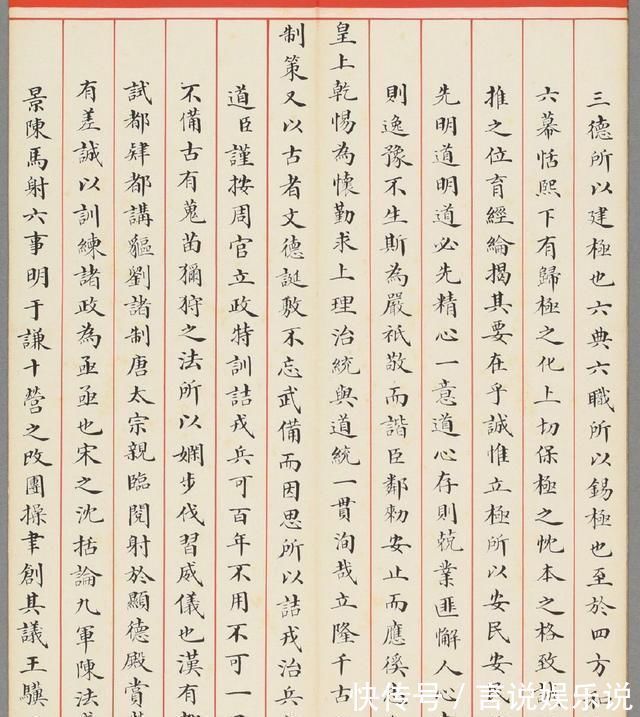 三德所以建極也六典六職所以錫極也至於四方和
六幕恬熙下有歸極之化上切保極之忱本之格致
推之位育經綸揭其要在乎誠惟立極所以安民安民
先明道明道必先精心一意道心存則兢業匪懈人心
則逸豫不生斯為嚴祇敬而諧臣鄰勑安止而應徯
皇上乾惕為懷勤求上理治統與道統一貫洵哉立隆千古
制策又以古者文德誕敷不忘武備而因思所以詰戎治兵
道臣謹按周官立政特訓詰戎兵可百年不用不可一
不備古有蒐苗獮狩之法所以嫻步伐習威儀也漢有
試都肄都講貙劉諸制唐太宗親臨閱射於顯德殿賞
有差誠以訓練諸政為亟亟也宋之沈括論九軍陳法
景陳馬射六事明于謙十營之改團操聿創其議王驥
快传号/言说娱乐说